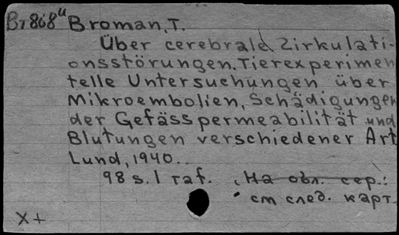 Br 868" Broman, T.
Über cerebrale Zirkulati-
onsstörungen. Tierexperimen
telle Untersuchungen über
Mikroembolien, Schädigungen
der Gefässpermeabilität und
Blutungen verschiedener Art
Lund, 1940.
98 s. 1 taf. На обл. сер.:
см след. карт.
X+